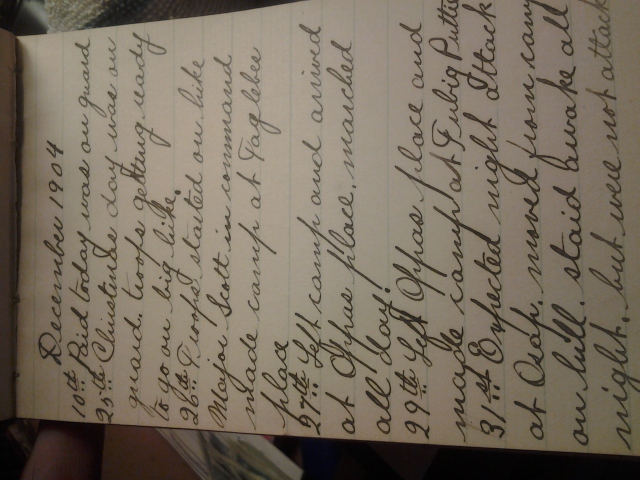 December 1904
10th Paid today was on guard
25th Christmas day was on
guard. troops getting ready
to go on big hike.
26th Troops started on hike
Major Scott in command
made camp at Taglebee
place
27th Left camp and arrived
at Oppas place. marched
all day.
29th Left Oppas place and
made camp at Tubig Putte
31st Expected night attack
at moved from camp
on hill. staid awake all
night. but were not attack